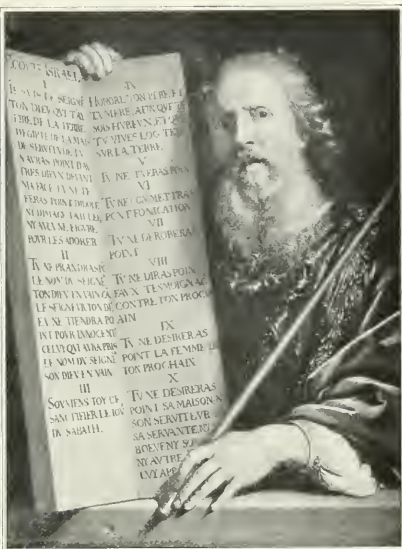 ISRAEL
I
TON DIEV QVI T'AY
DE LA TERRE
DEVANT
MA FACE TV NE TE
FERAS POINT D'IDOLE
NY IMAGE TAILLEE
NY AVCVNE FIGVRE
POVR LES ADORER
II
TV NE PRANDRAS
LE NOM DV SEIGNE
TON DIEV EN VAIN CA
LE SEIGNEVR TON DI
NE TIENDRA PO
INT POVR INNOCENT
CELVY QVI AVRA PRIS
LE NOM DV SEIGNE
SON DIEV EN VAIN
III
SOVVIENS TOY DE
SANCTIFIER LE IOV
DV SABATH
IV
HONORE TON PERE ET
TA MERE AFIN QVE TV
SOIS HVREVX ET QVE
TV VIVES LONG TE
SVR LA TERRE
V
TV NE TVERAS POIN
VI
TV NE COMMETTRA
POINT FORNICATION
VII
TV NE DEROBERA
POINT
VIII
TV NE DIRAS POIN
FAVX TESMOIGNAG
CONTRE TON PROCH
AIN
IX
TV NE DESIRERAS
POINT LA FEMME D
TON PROCHAIN
X
TV NE DESIRERAS
POINT SA MAISON N
SON SERVITEVR
SA SERVANTE NY
BOEVF NY SO
NY AVTRE
LVY AP